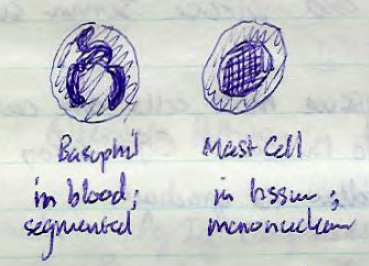 Basophil
in blood;
segmented
Mast Cell
in tissue;
mononuclear